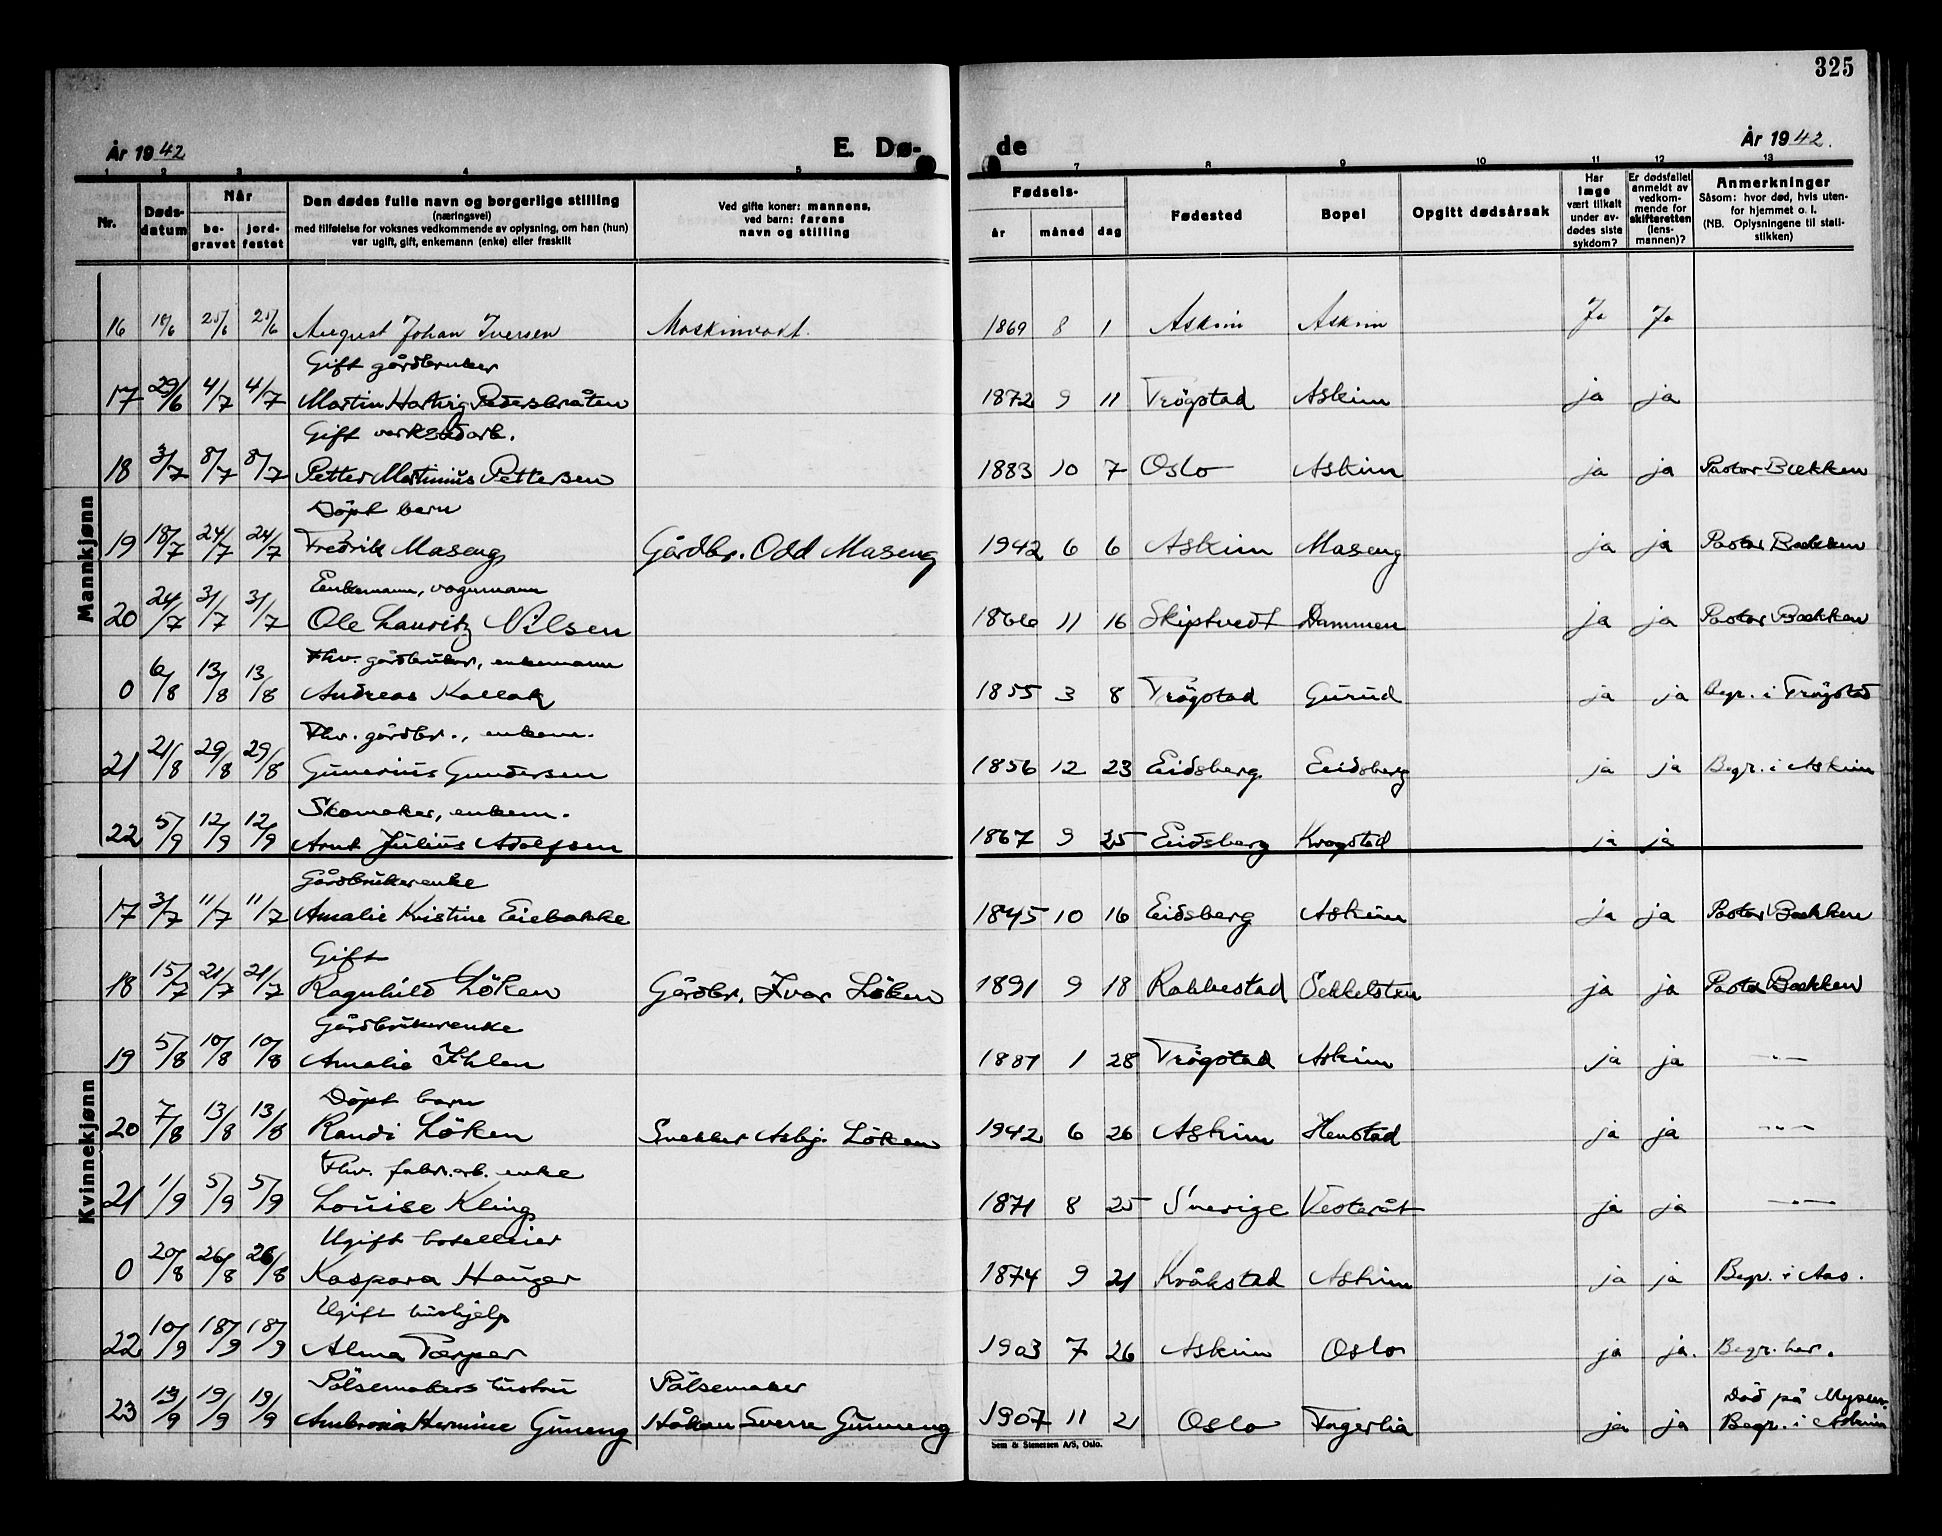 325
År 1942
E. Dø-
de
År 1942.
1 2 3 4 5 7 8 9 10 11 12 13
Nr.
Døds-
datum
Når
be-
gravet
jord-
festet
Den dødes fulle navn og borgerlige stilling
(næringsvei)
med tilføielse for voksnes vedkommende av oplysning, om han (hun)
var ugift, gift, enkemann (enke) eller fraskilt
Ved gifte koner: mannens,
ved barn: farens
navn og stilling
Fødsels-
år måned dag
Fødested
Bopel
Opgitt dødsårsak
Har
læge
vært tilkalt
under av-
dødes siste
sykdom?
Er dødsfallet
anmeldt av
vedkom-
mende for
skifteretten
(lens-
mannen)?
Anmerkninger
Såsom: hvor død, hvis uten-
for hjemmet o. l.
(NB. Oplysningene til stati-
stikken)
Mannkjønn
16 18/6 25/6 25/6 August Johan Iversen Maskinvakt. 1869 8 1 Askim Askim Ja Ja
Gift gårdbruker
17 29/6 4/7 4/7 Martin Hartvig Pedersbråten 1872 9 11 Trögstad Askim ja ja
Gift verkstedarb.
18 3/7 8/7 8/7 Petter Martinius Pettersen 1883 10 7 Oslo Askim ja ja Pastor Bækken
Döpt barn
19 18/7 24/7 24/7 Fredrik Maseng Gårdbr. Odd Maseng 1942 6 6 Askim Maseng ja ja Pastor Bækken
Enkemann, vognmann
20 24/7 31/7 31/7 Ole Lauritz Nilsen 1866 11 16 Skiptvedt Dammen ja ja Pastor Bækken
Fhv. gårdbruker, enkemann
0 6/8 13/8 13/8 Andreas Kallak 1855 3 8 Trögstad Gurud ja ja Begr. i Trögstad
Fhv. gårdbr., enkem.
21 21/8 29/8 29/8 Gunerius Gundersen 1856 12 23 Eidsberg Eidsberg ja ja Begr. i Askim
Skomaker, enkem.
22 5/9 12/9 12/9 Arnt Julius Adolfsen 1867 9 25 Eidsberg Krogstad ja ja
Kvinnekjønn
Gårdbrukerenke
17 3/7 11/7 11/7 Amalie Kristine Eiebakke 1845 10 16 Eidsberg Askim ja ja Pastor Bækken
Gift
18 15/7 21/7 21/7 Ragnhild Löken Gårdbr. Ivar Löken 1891 9 18 Rakkestad Sekkelsten ja ja Pastor Bækken
Gårdbrukerenke
19 5/8 10/8 10/8 Amalie Ihlen 1881 1 28 Trögstad Askim ja ja -"-
Döpt barn
20 7/8 13/8 13/8 Randi Löken Snekker Asbj. Löken 1942 6 26 Askim Henstad ja ja -"-
Fhv. fabr.arb. enke
21 1/9 5/9 5/9 Louise Kling 1871 8 25 Sverige Vesteråt ja ja -"-
Ugift hotelleier
0 20/8 26/8 26/8 Kaspara Hauger 1874 9 21 Kråkstad Askim ja ja Begr. i Aas.
Ugift hushjelp
22 10/9 18/9 18/9 Alma Tærper 1903 7 26 Askim Oslo ja ja. Begr. her.
Pölsemakers hustru Pölsemaker Död på Mysen.
23 13/9 19/9 19/9 Ambrosia Hermine Guneng Håkon Sverre Gunneng 1907 11 21 Oslo Fagerlia ja ja Begr. i Askim
Sem & Stenersen A/S, Oslo.